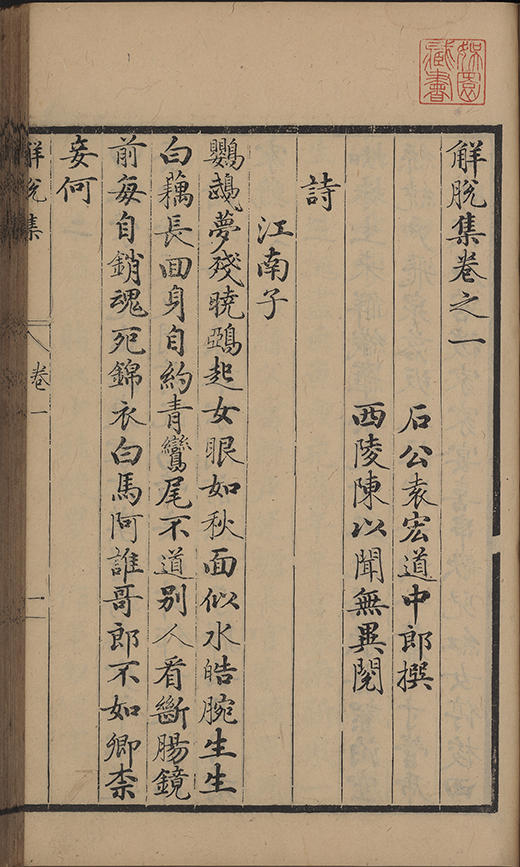 娛園
藏書
觧脫集卷之一
石公袁宏道中郎撰
西陵陳以聞無異閱
詩
江南子
鸚鵡夢殘曉鵶起女眼如秋面似水皓腕生生
白藕長囬身自約青鸞尾不道別人看斷腸鏡
前每自銷魂死錦衣白馬阿誰哥郎不如卿柰
妾何
觧脫集
卷一
一